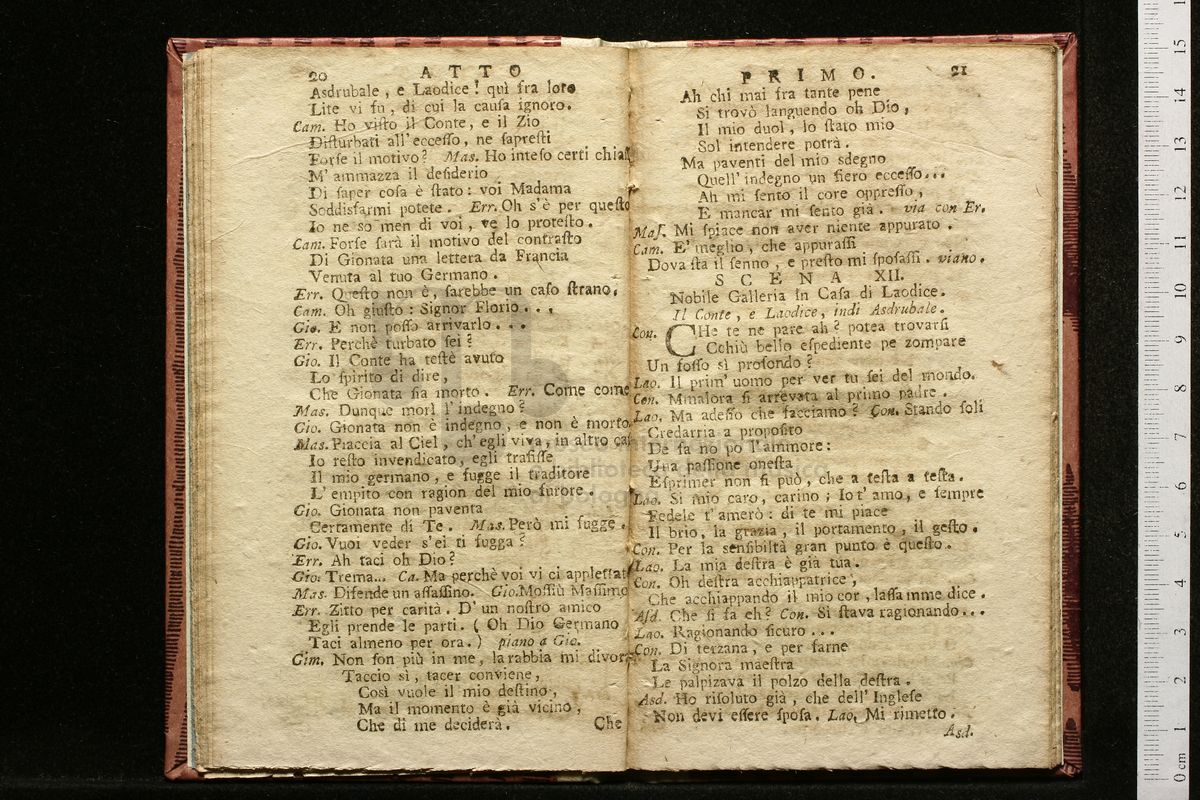 20 ATTO
Asdrubale, e Laodice! quì fra loro
Lite vi fù, di cui la causa ignoro.
Cam. Ho visto il Conte, e il Zio
Disturbati all'eccesso, ne sapresti
Forse il motivo? Mas. Ho inteso certi
M'ammazza il desiderio
Di saper cosa è stato: voi Madama
Soddisfarmi potete. Err. Oh s'è per questo
Io ne so men di voi, ve lo protesto.
Cam. Forse sarà il motivo del contrasto
Di Gionata una lettera da Francia
Venuta al tuo Germano.
Err. Questo non è, sarebbe un caso strano.
Cam. Oh giusto: Signor Florio...
Gio. E non posso arrivarlo...
Err. Perchè turbato sei?
Gio. Il Conte ha testè avuto
Lo spirito di dire,
Che Gionata sia morto. Err. Come come
Mas. Dunque morì l'indegno?
Gio. Gionata non è indegno, e non è morto.
Mas. Piaccia al Ciel, ch'egli viva, in altro
Io resto invendicato, egli trafisse
Il mio germano, e fugge il traditore
L'empito con ragion del mio furore.
Gio. Gionata non paventa
Certamente di Te. Mas. Però mi fugge.
Gio. Vuoi veder s'ei ti fugga?
Err. Ah taci oh Dio?
Gio. Trema... Ca. Ma perchè voi vi ci
Mas. Difende un assassino. Gio. Mossiù Massimo
Err. Zitto per carità. D'un nostro amico
Egli prende le parti. (Oh Dio Germano
Taci almeno per ora.) piano a Gio.
Gim. Non son più in me, la rabbia mi
Taccio sì, tacer conviene,
Così vuole il mio destino,
Ma il momento è già vicino,
Che di me deciderà. Che
PRIMO. 21
Ah chi mai fra tante pene
Si trovò languendo oh Dio,
Il mio duol, lo stato mio
Sol intendere potrà.
Ma paventi del mio sdegno
Quell'indegno un fiero eccesso...
Ah mi sento il core oppresso,
E mancar mi sento già. via con Er.
Mas. Mi spiace non aver niente appurato.
Cam. E' meglio, che appurassi
Dova sta il senno, e presto mi sposassi. viano.
SCENA XII.
Nobile Galleria in Casa di Laodice.
Il Conte, e Laodice, indi Asdrubale.
Con. CHe te ne pare ah? potea trovarsi
Cchiù bello espediente pe zompare
Un fosso sì profondo?
Lao. Il prim'uomo per ver tu sei del mondo.
Con. Mmalora si arrevata al primo padre.
Lao. Ma adesso che facciamo? Con. Stando soli
Credarria a proposito
De fa no po l'ammore:
Una passione onesta
Esprimer non si può, che a testa a testa.
Lao. Si mio caro, carino; Io t'amo, e sempre
Fedele t'amerò: di te mi piace
Il brio, la grazia, il portamento, il gesto.
Con. Per la sensibiltà gran punto è questo.
Lao. La mia destra è già tua.
Con. Oh destra acchiappatrice,
Che acchiappando il mio cor, lassa mme dice.
Asd. Che si fa eh? Con. Si stava ragionando...
Lao. Ragionando sicuro...
Con. Di terzana, e per farne
La Signora maestra
Le palpizava il polzo della destra.
Asd. Ho risoluto già, che dell'Inglese
Non devi essere sposa. Lao. Mi rimetto.
Asd.